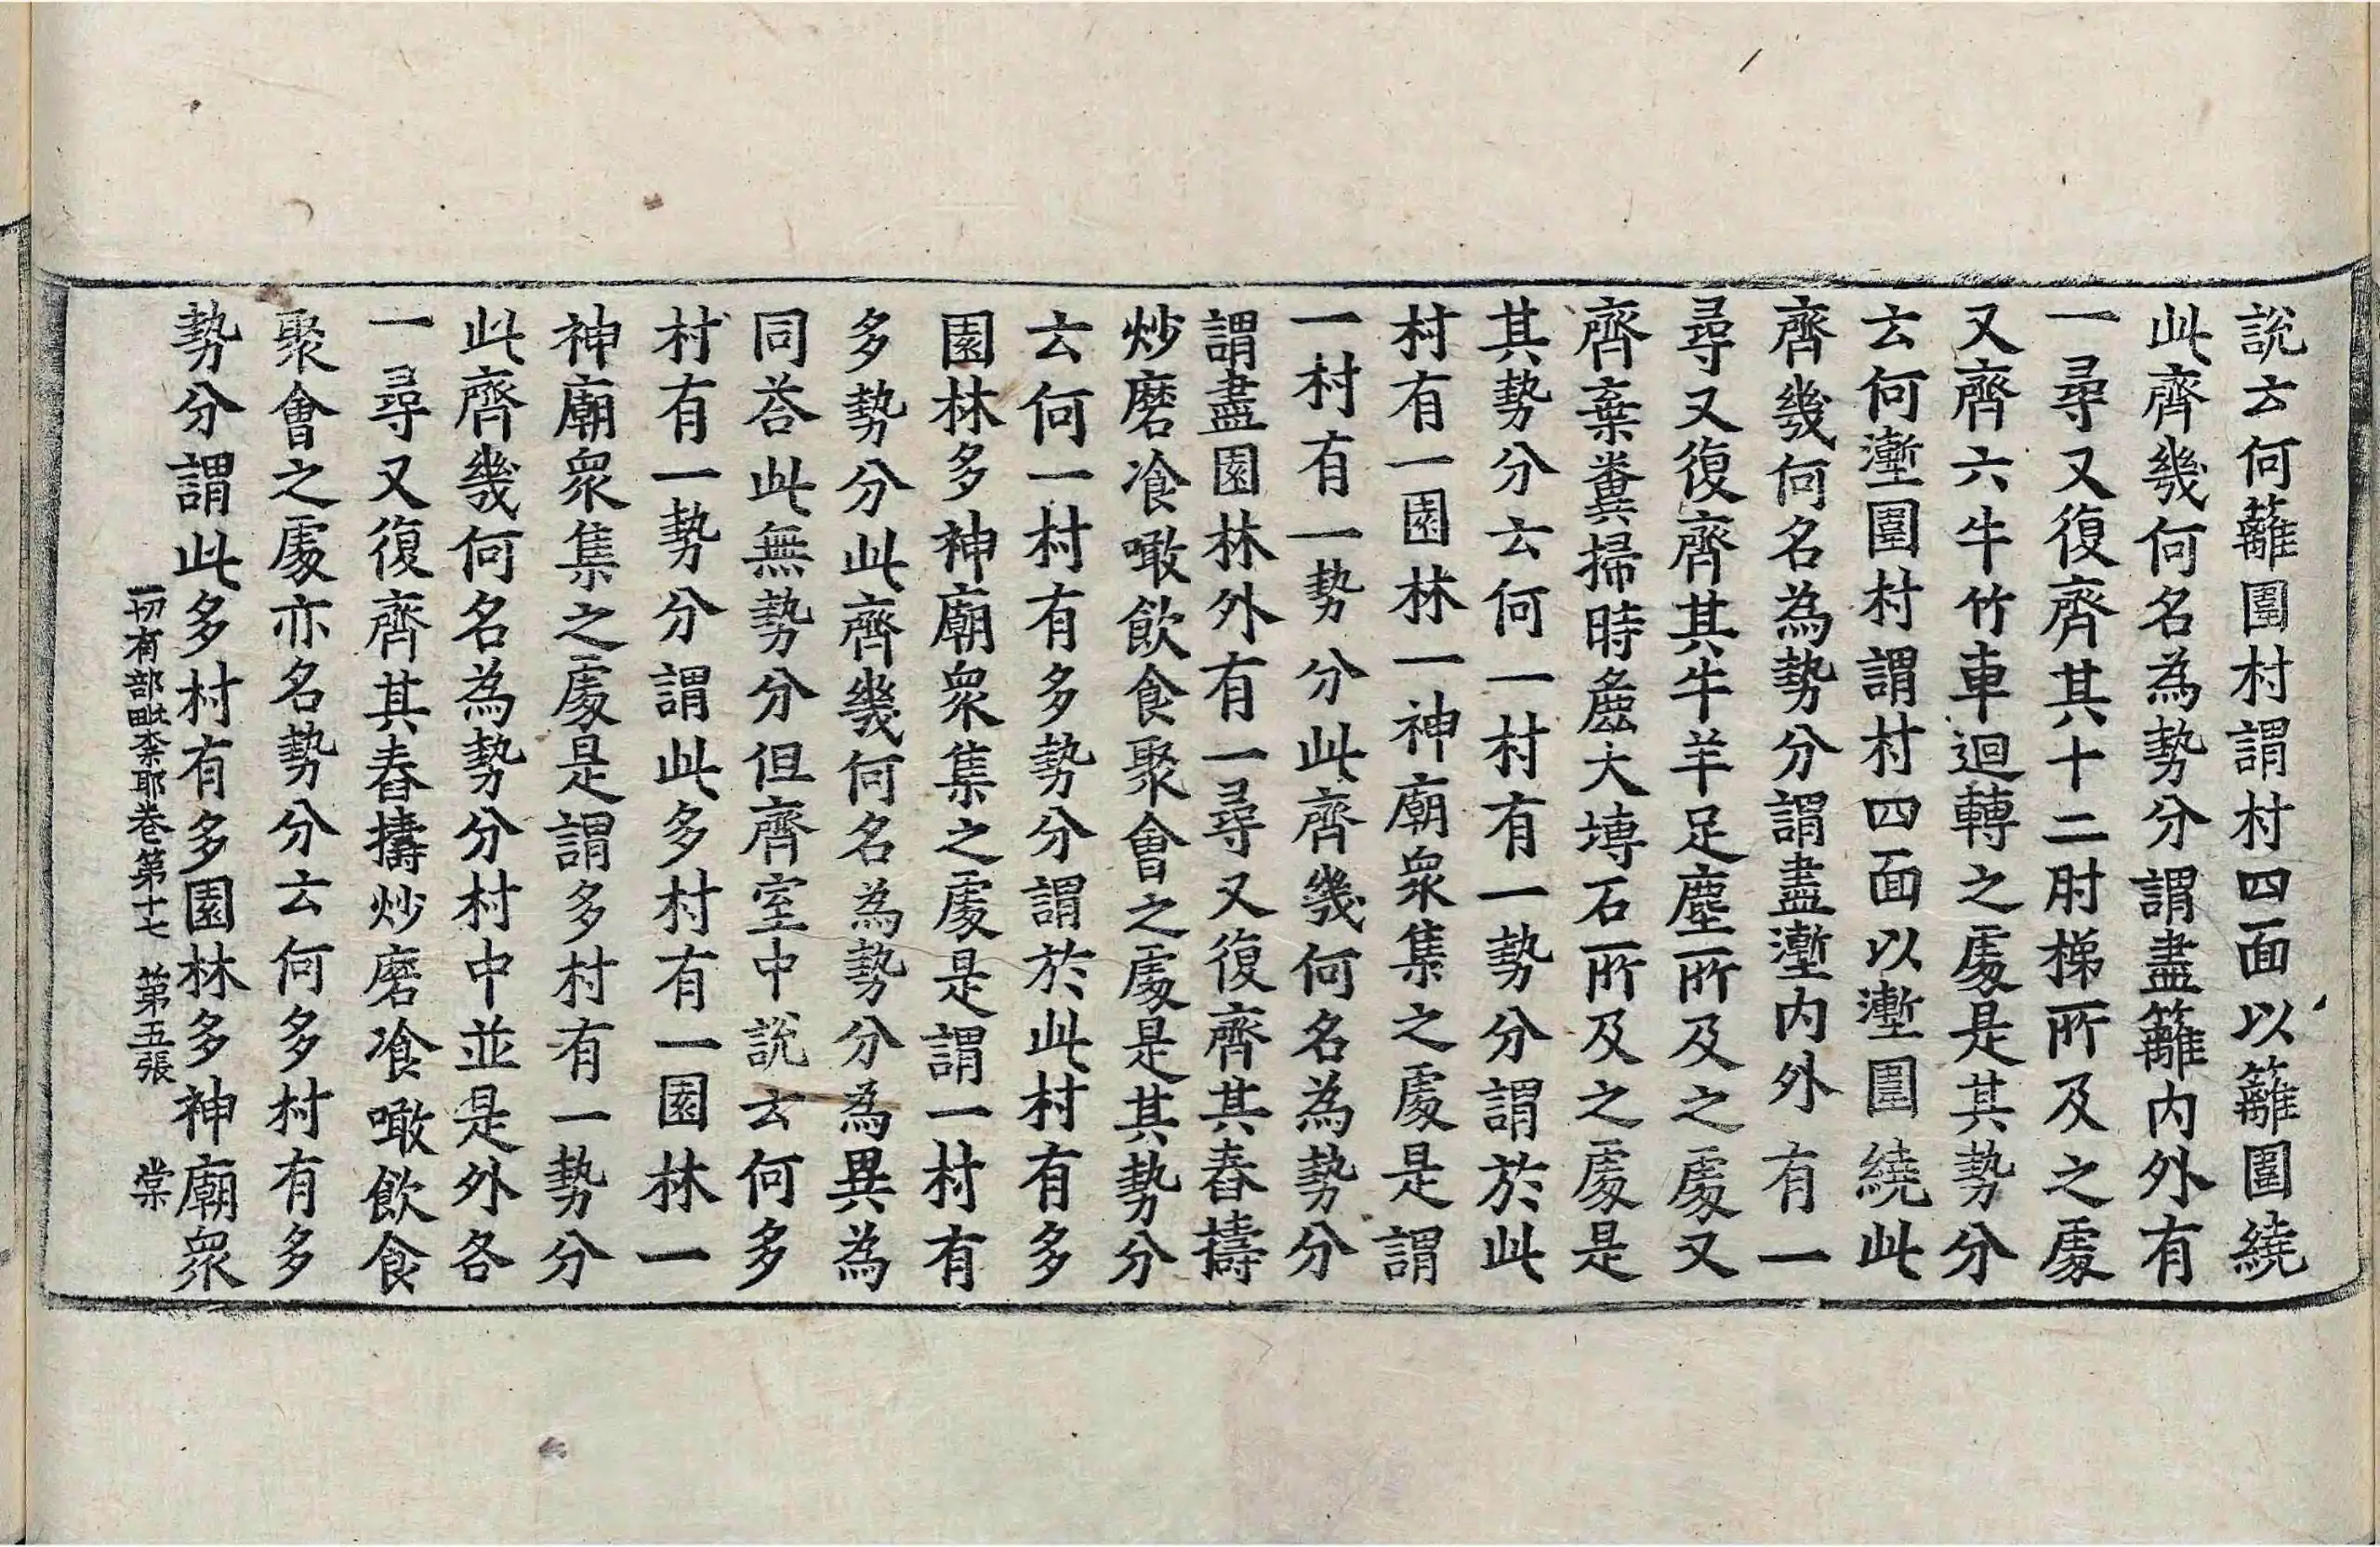 說云何籬圍村謂村四面以籬圍繞
此齊幾何名為勢分謂盡籬內外有
一尋又復齊其十二肘梯所及之處
又齊六牛竹車迴轉之處是其勢分
云何壍圍村謂村四面以壍圍繞此
齊幾何名為勢分謂盡壍內外有一
尋又復齊其牛羊足塵所及之處又
齊棄糞掃時麁大塼石所及之處是
其勢分云何一村有一勢分謂於此
村有一園林一神廟眾集之處是謂
一村有一勢分此齊幾何名為勢分
謂盡園林外有一尋又復齊其舂擣
炒磨飡噉飲食聚會之處是其勢分
云何一村有多勢分謂於此村有多
園林多神廟眾集之處是謂一村有
多勢分此齊幾何名為勢分為異為
同荅此無勢分但齊室中說云何多
村有一勢分謂此多村有一園林一
神廟眾集之處是謂多村有一勢分
此齊幾何名為勢分村中並是外各
一尋又復齊其舂擣炒磨飡噉飲食
聚會之處亦名勢分云何多村有多
勢分謂此多村有多園林多神廟眾
一切有部毗柰耶卷第十七 第五張 棠